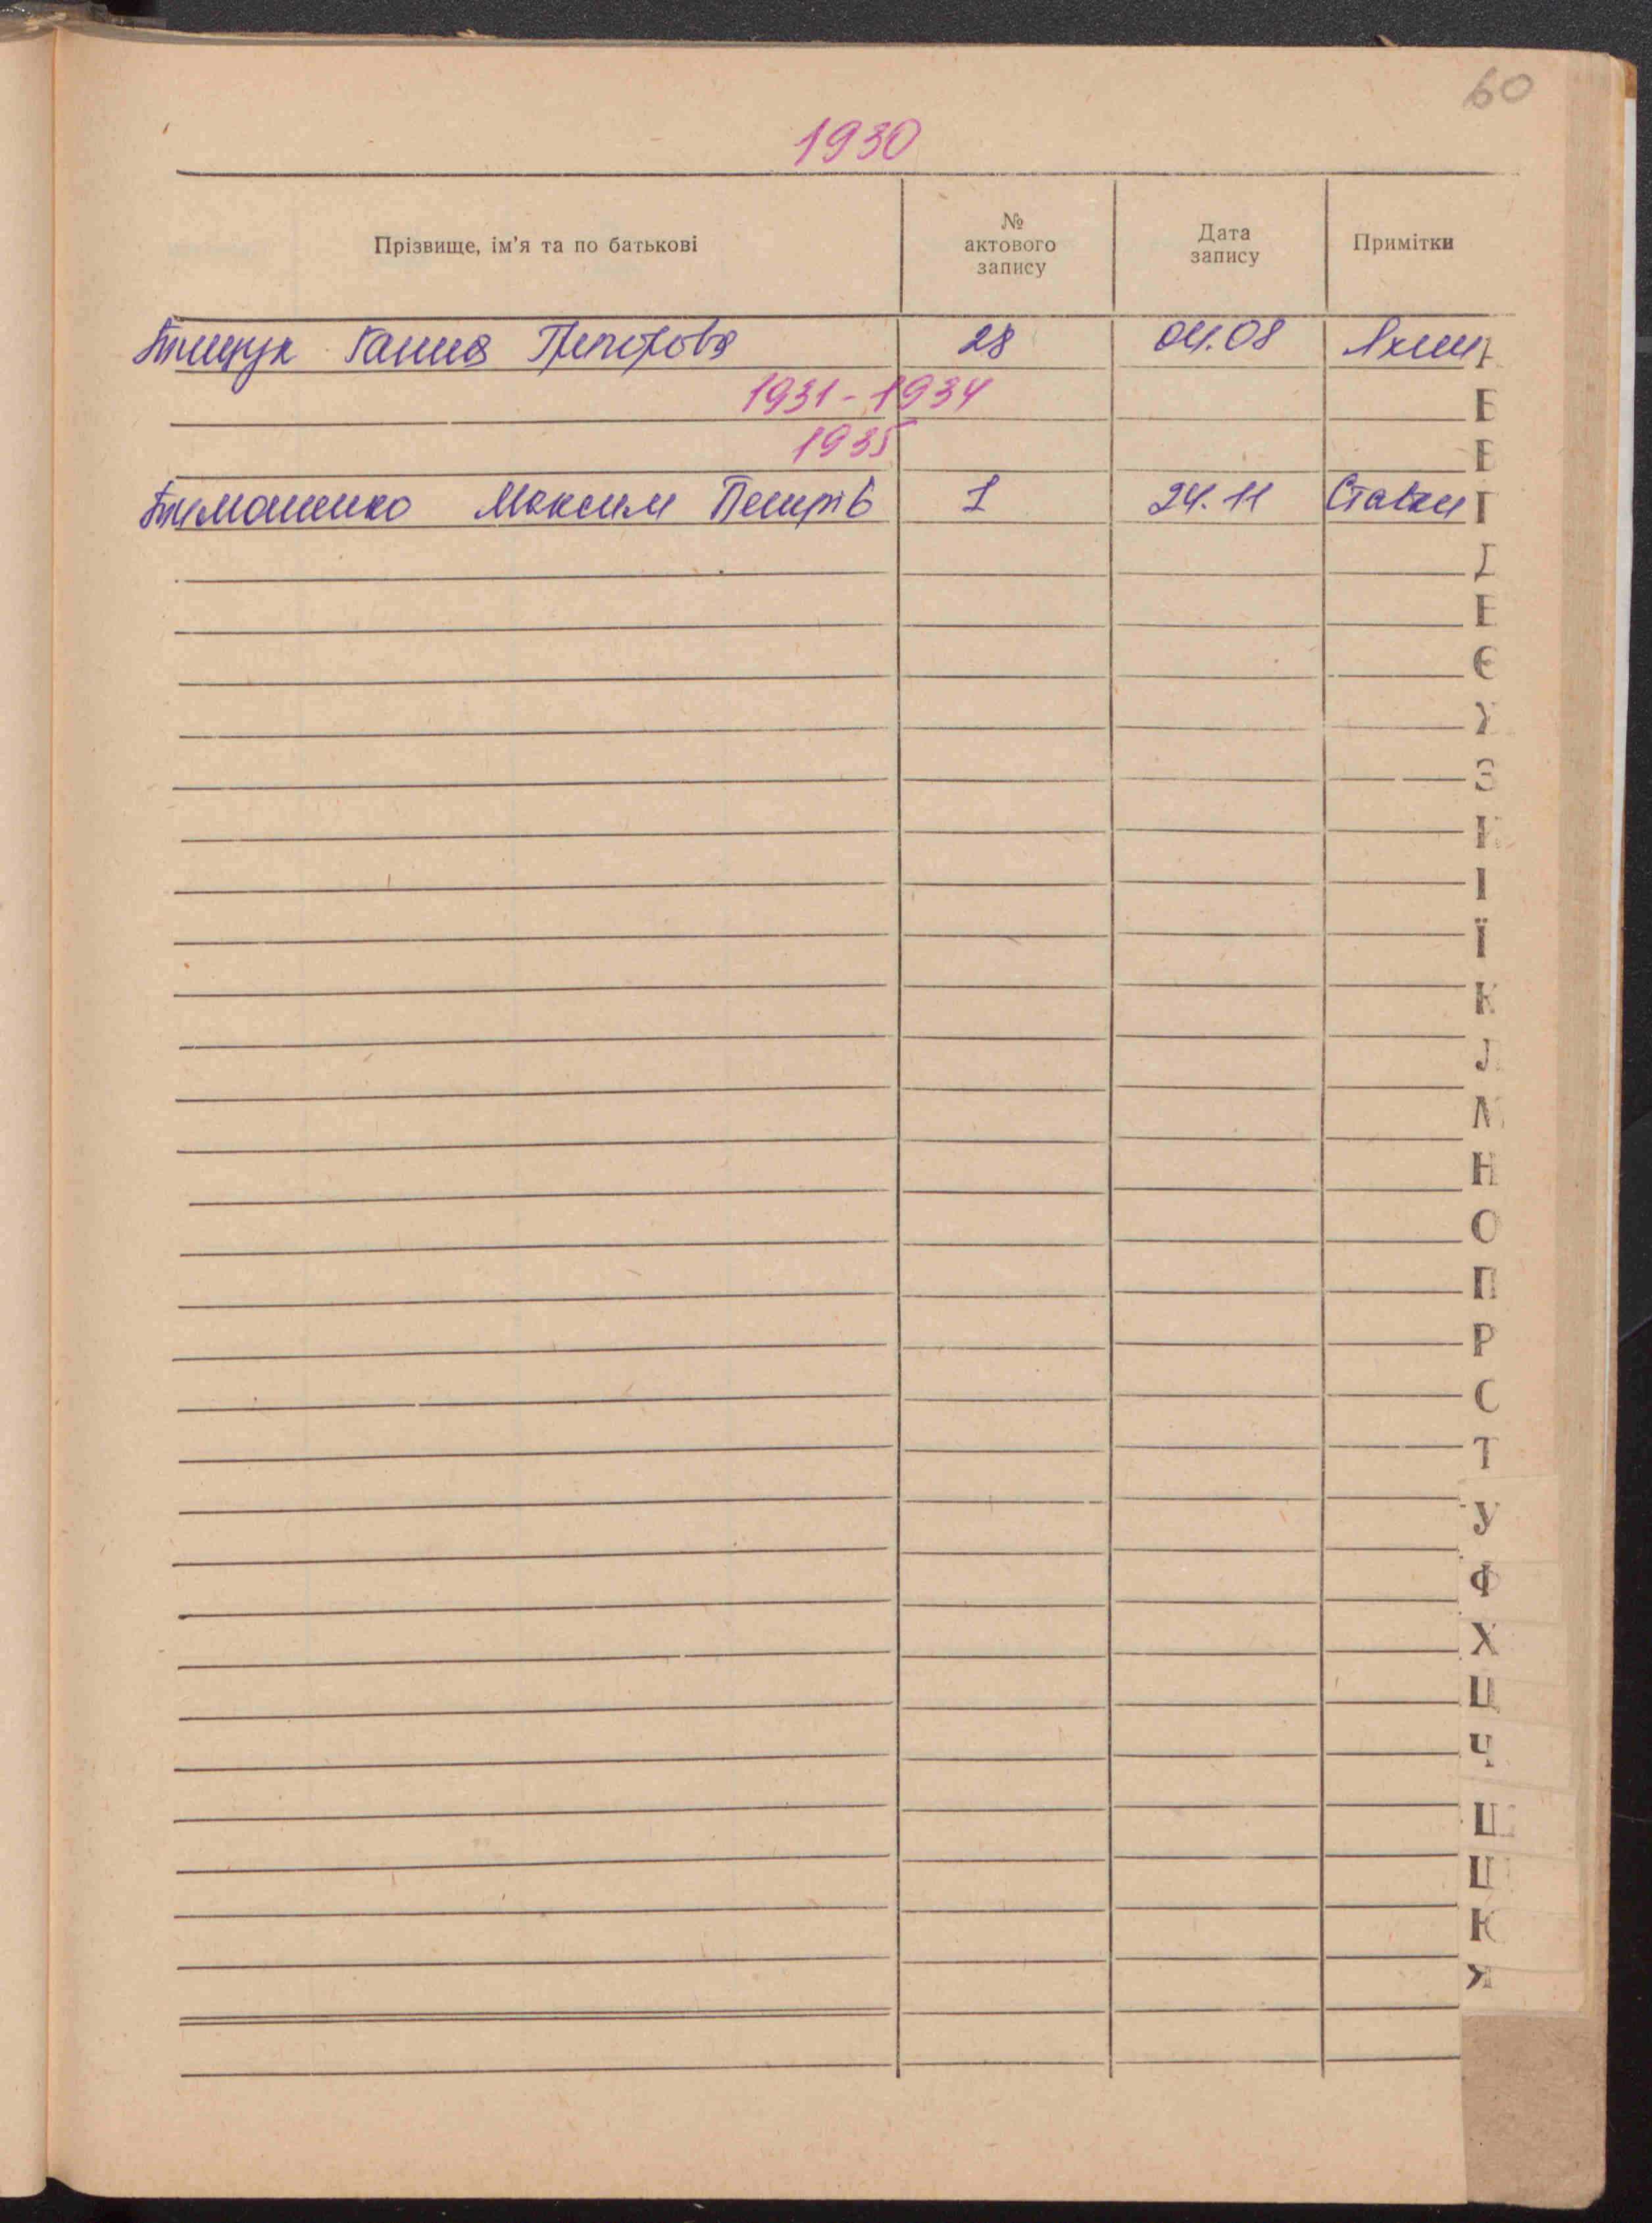 60
1930
Прізвище, ім'я та по батькові № актового запису Дата запису Примітки
Тищук Ганна 28 04.08
1931-1934
1935
Тимошенко Максим Петрів 1 24.11 Ставки
Г
Д
Е
Є
Ж
З
И
І
Ї
К
Л
М
Н
О
П
Р
С
Т
У
Ф
Х
Ц
Ч
Ш
Щ
Ю
Я